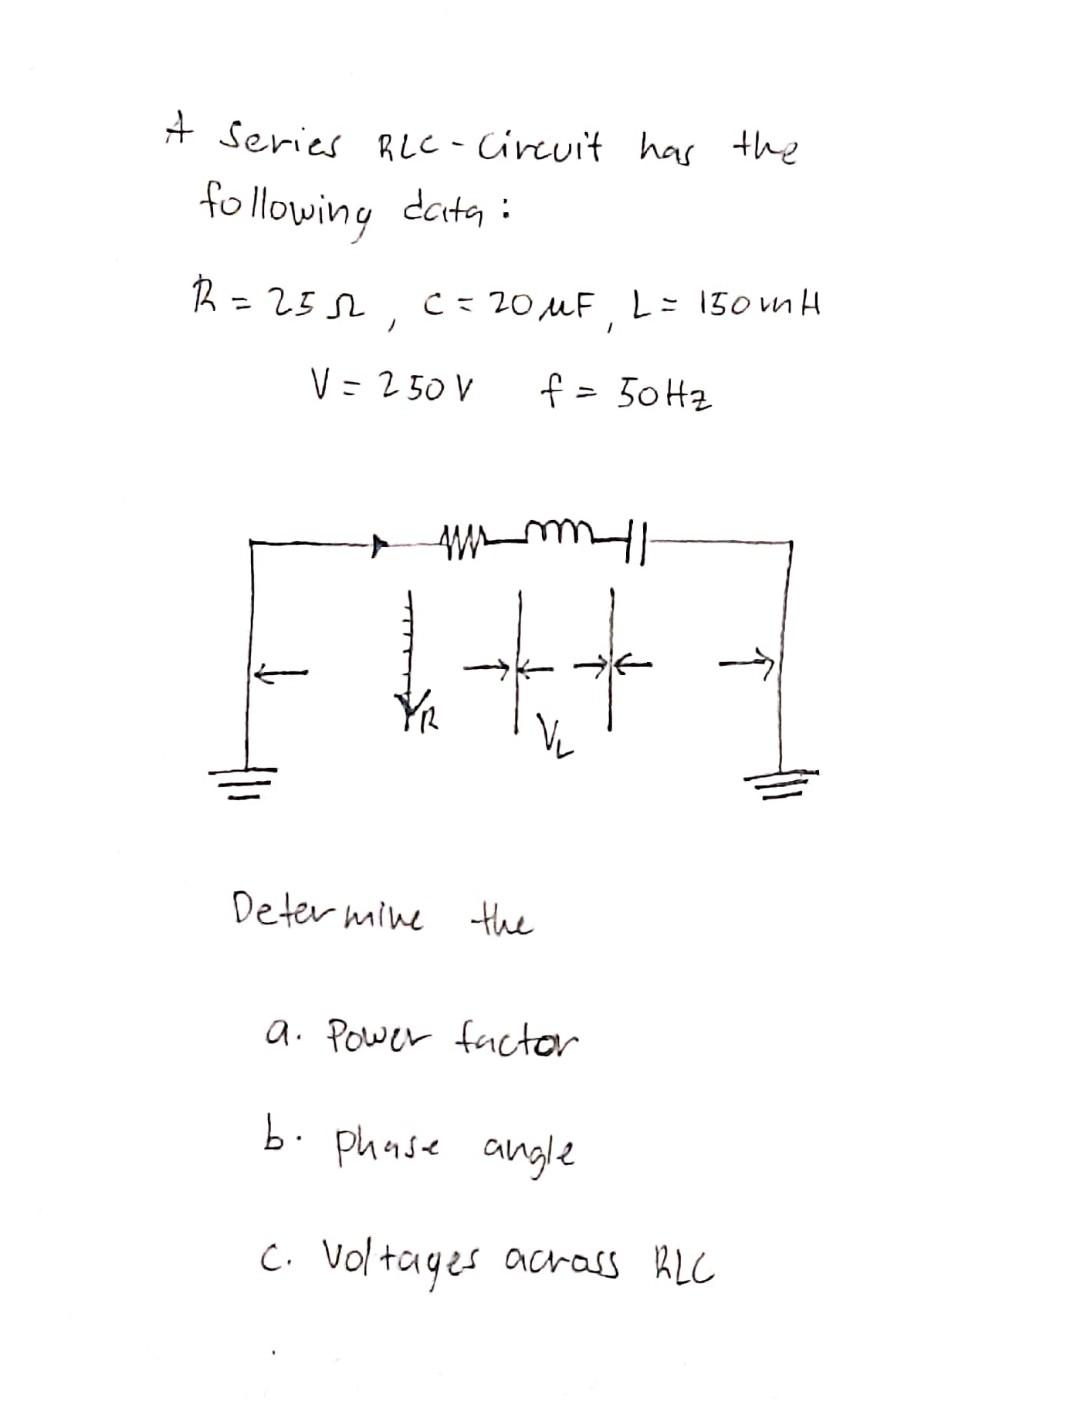 A Series RLC-Circuit has the
following data:
R = 25 Ω, C = 20 μF, L = 150 mH
V = 250 V f = 50 Hz
VR
VL
Determine the
a. Power factor
b. phase angle
c. Voltages across RLC